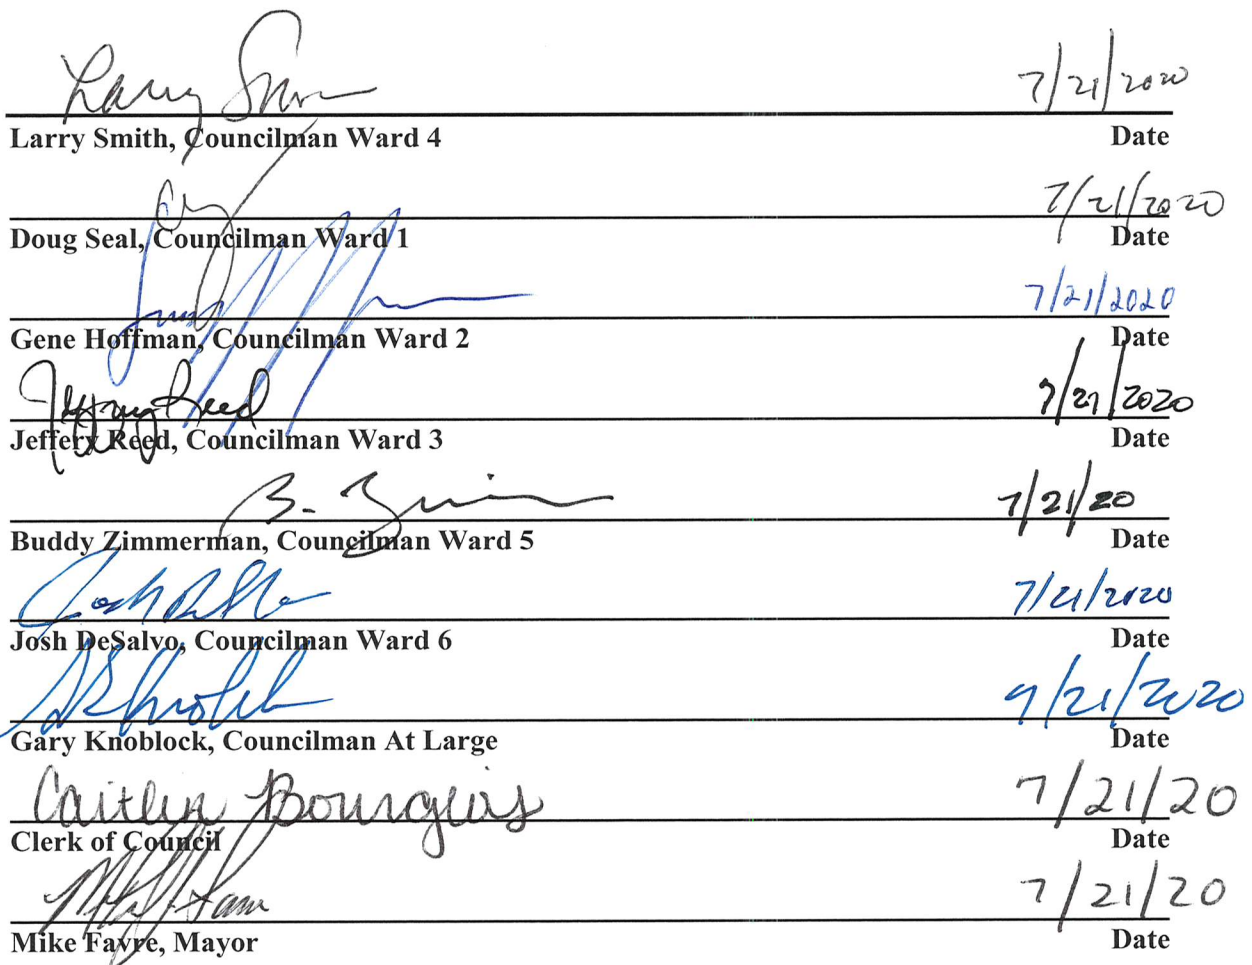 Larry Smith 7/21/2020
Larry Smith, Councilman Ward 4 Date
7/21/2020
Doug Seal, Councilman Ward 1 Date
7/21/2020
Gene Hoffman, Councilman Ward 2 Date
Jeffery Reed 7/21/2020
Jeffery Reed, Councilman Ward 3 Date
7/21/20
Buddy Zimmerman, Councilman Ward 5 Date
Josh DeSalvo 7/21/2020
Josh DeSalvo, Councilman Ward 6 Date
7/21/2020
Gary Knoblock, Councilman At Large Date
Caitlin Bourgeois 7/21/20
Clerk of Council Date
7/21/20
Mike Favre, Mayor Date